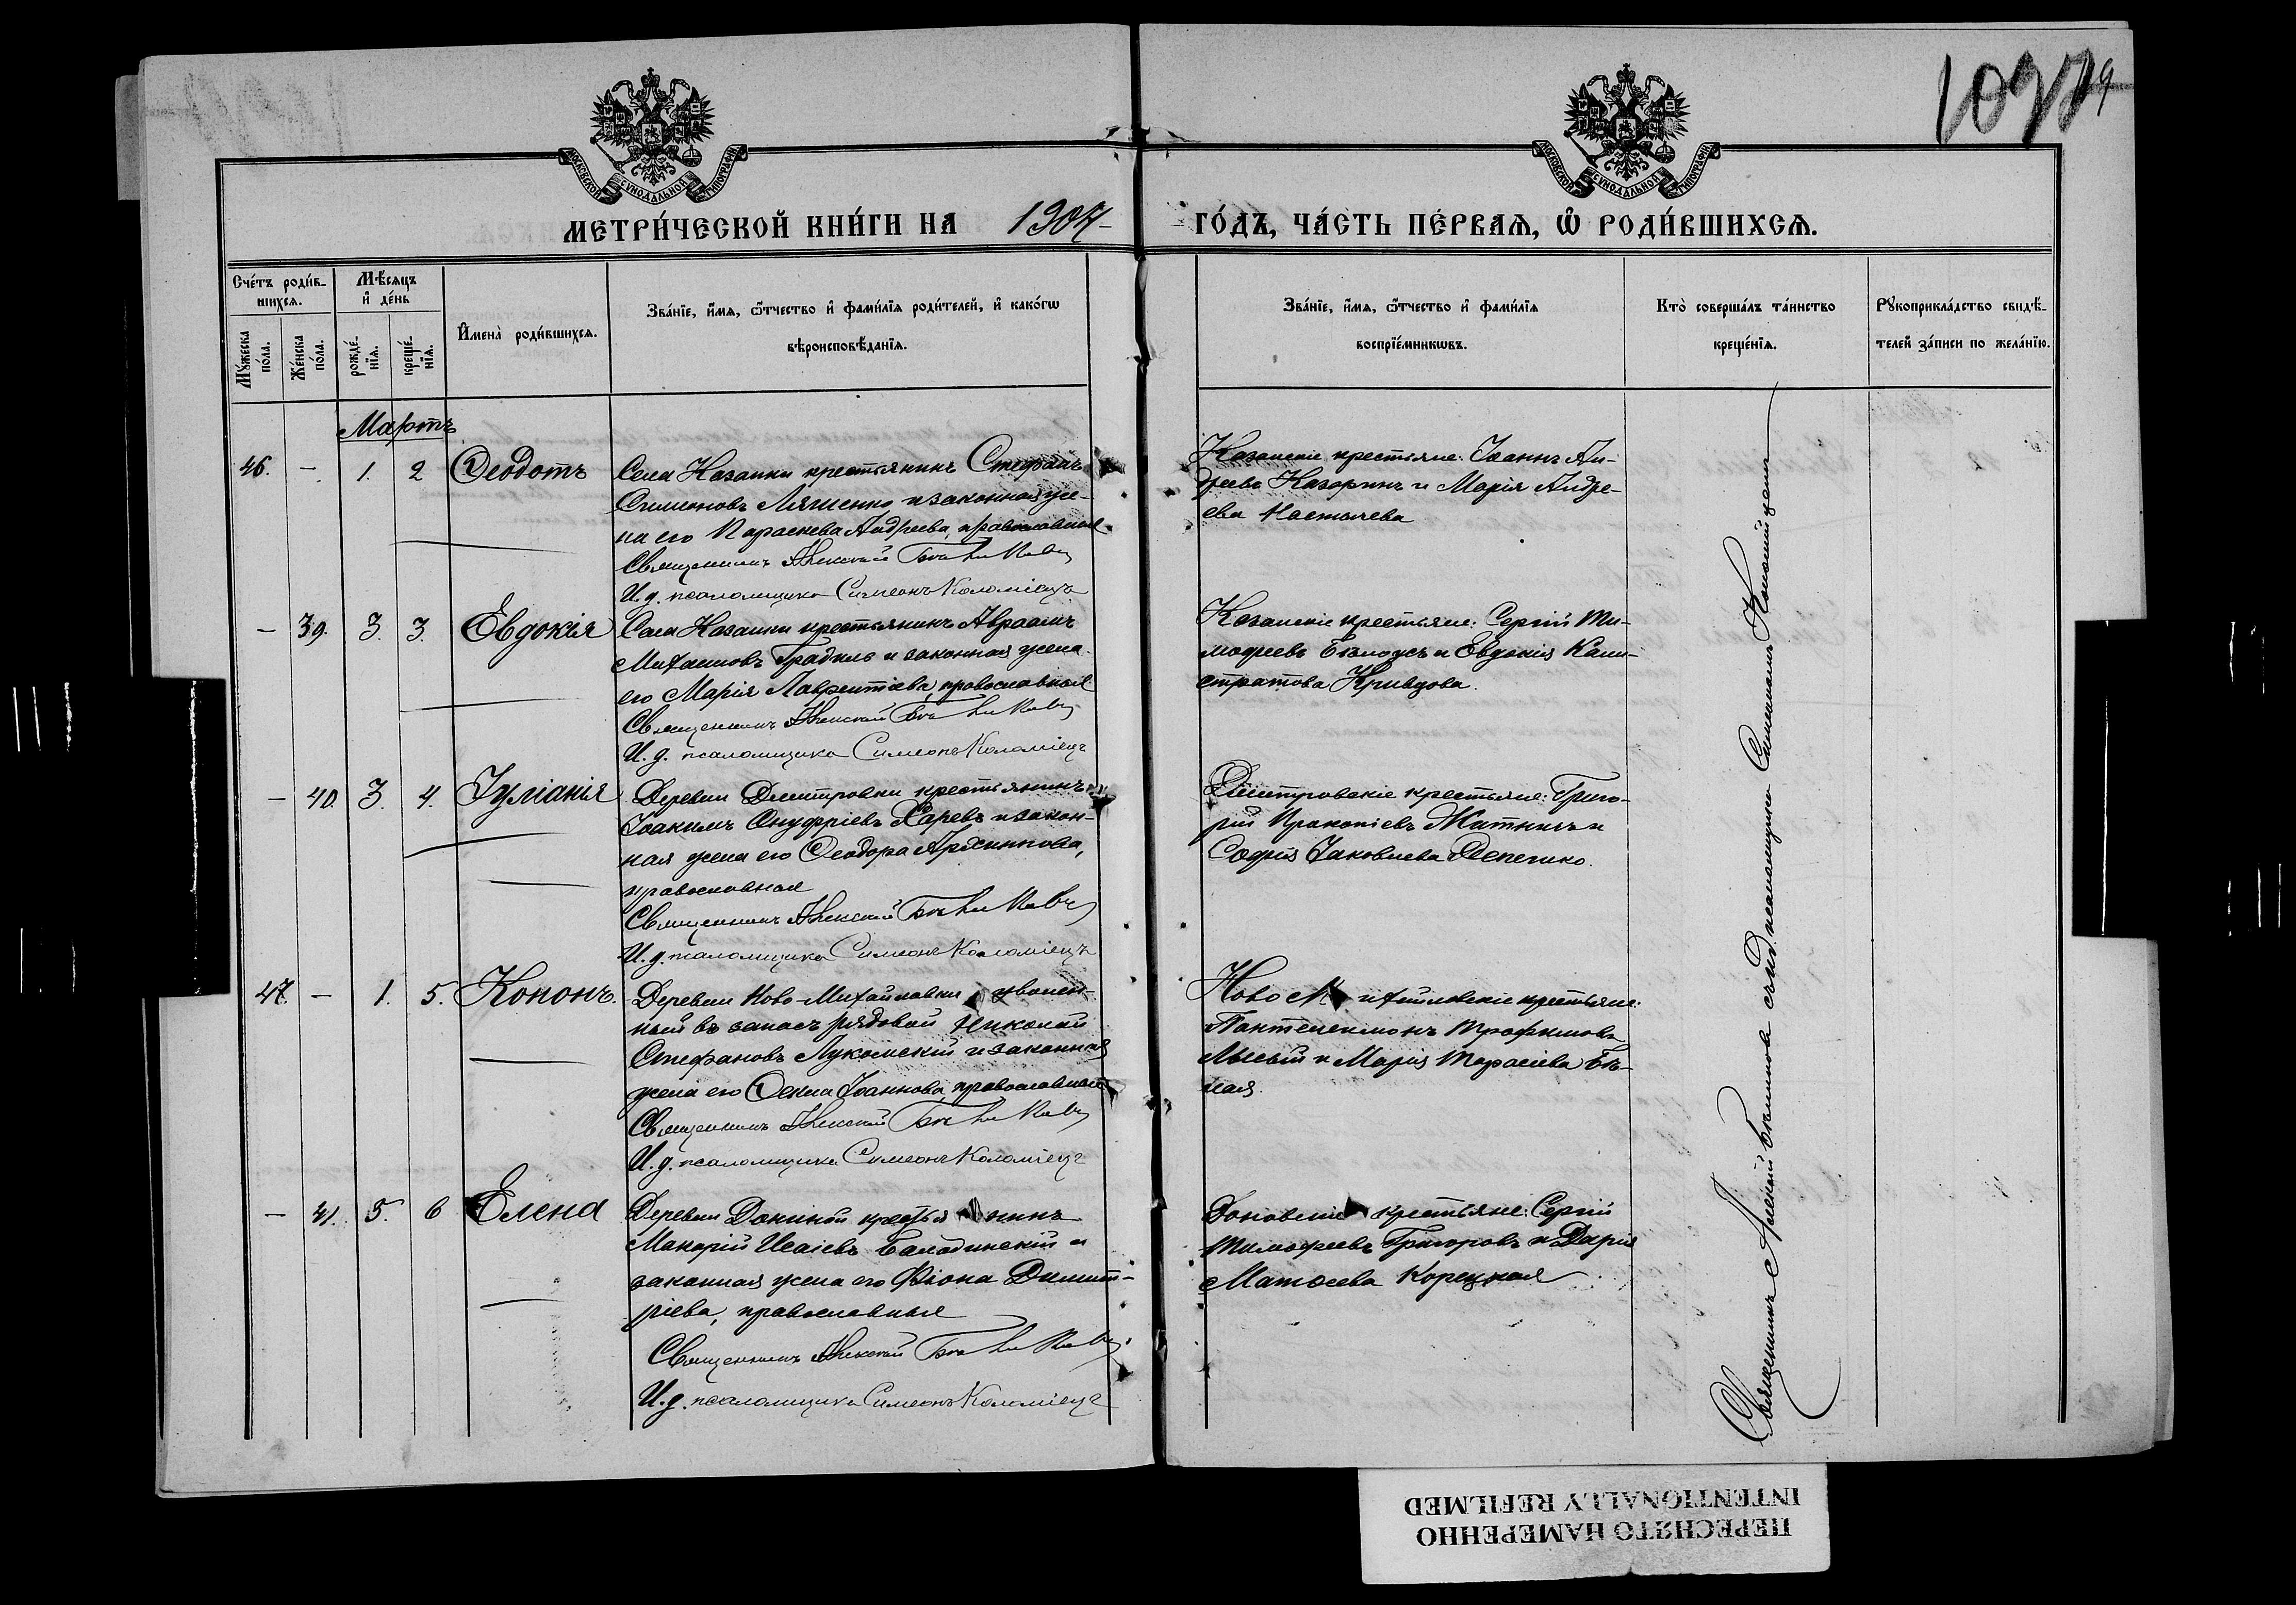 МОСКОВСКОЙ СУНОДАЛЬНОЙ ТИПОГРАФІИ
МОСКОВСКОЙ СУНОДАЛЬНОЙ ТИПОГРАФІИ
МЕТРИ́ЧЕСКОЙ КНИ́ГИ НА 1904
ГО́ДЪ, ЧА́СТЬ ПЕ́РВАѦ, Ѡ РОДИ́ВШИХСѦ.
Сче́тъ роди́в-
шихсѧ.
Мꙋ́жеска по́ла.
Же́нска по́ла.
Мѣ́сѧцъ
и҆ де́нь
рожде́-
нїѧ.
креще́-
нїѧ.
И҆мена̀ роди́вшихсѧ.
Зва́нїе, и҆́мѧ, ѻ҆́тчество и҆ фами́лїѧ роди́телей, и҆ како́гѡ
вѣроисповѣ́данїѧ.
Зва́нїе, и҆́мѧ, ѻ҆́тчество и҆ фами́лїѧ
воспрїе́мникѡвъ.
Кто̀ соверша́лъ та́инство
креще́нїѧ.
Рꙋкоприкла́дство свидѣ́-
телей за́писи по жела́нїю.
Мартъ
46. - 1. 2 Ѳеодотъ
Села Казанки крестьянинъ Стефанъ
Симоновъ Ляшенко и законная же-
на его Параскева Андреева, православные
Священникъ Алексій
И. д. псаломщика Симеонъ Коломіецъ
Казанскіе крестьяне: Іоаннъ Ан-
дреевъ Казоринъ и Марія Андре-
ева
- 39. 3. 3. Евдокія
Села Казанки крестьянинъ Авраамъ
Михаиловъ и законная жена
его Марія Лаврентіева, православные
Священникъ Алексій
И. д. псаломщика Симеонъ Коломіецъ
Казанскіе крестьяне: Сергій Ти-
мофеевъ Бѣлоусъ и Евдокія Кали-
стратова Кривцова.
- 40. 3. 4. Іуліанія
Деревни Дмитровки крестьянинъ
Іоакимъ Онуфріевъ Царевъ и закон-
ная жена его Ѳеодора Архиппова,
православные
Священникъ Алексій
И. д. псаломщика Симеонъ Коломіецъ
Дмитровскіе крестьяне: Григо-
рій Прокопіевъ Житникъ и
Софія Іаковлева
47. - 1. 5. Кононъ.
Деревни Ново-Михайловки уволен-
ный въ запасъ рядовой Николай
Стефановъ Лукомскій и законная
жена его Ѳекла Іоаннова, православные
Священникъ Алексій
И. д. псаломщика Симеонъ Коломіецъ
Ново-Михайловскіе крестьяне:
Пантелеимонъ Трофимовъ
Лысый и Марія Тарасіева Бѣ-
лая.
- 41. 5. 6 Елена
Деревни Дониной крестьянинъ
Макарій Исаіевъ и
законная жена его Фіона Димит-
ріева, православные
Священникъ Алексій
И. д. псаломщика Симеонъ Коломіецъ
Доновскіе крестьяне: Сергій
Тимофеевъ Григоровъ и Дарія
Матѳеева Корецкая
Священникъ Алексій съ и. д. псаломщика Симеономъ Коломійцемъ
ПЕРЕСНЯТО НАМЕРЕННО
INTENTIONALLY REFILMED